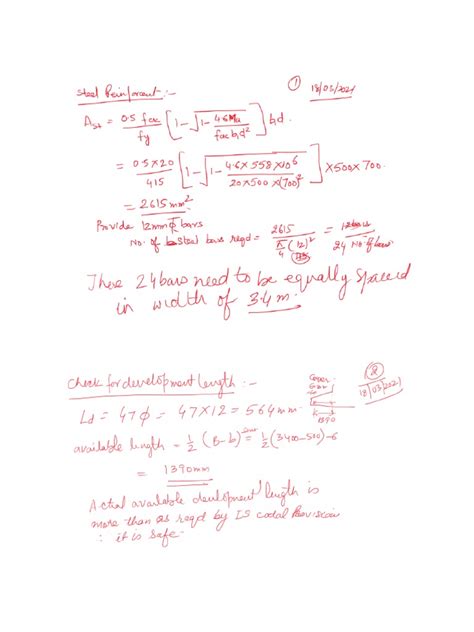 Steel Reinforcement :-
① 18/03/2021
Ast = 0.5 fck / fy [ 1 - √(1 - 4.6 Mu / fck b,d²) ] b,d.
= 0.5 x 20 / 415 [ 1 - √(1 - 4.6 x 558 x 10⁶ / 20 x 500 x (700)²) ] x 500 x 700.
= 2615 mm²
Provide 12mm φ bars
No. of steel bars reqd = 2615 / π/4 (12)² = 24 No. of bars
These 24 bars need to be equally spaced
in width of 3.4 m.
②
18/03/2021
Check for development length :-
Cover
5mm
1390
Ld = 47φ = 47 x 12 = 564 mm.
available length = 1/2 (B - b) = 1/2 (3400 - 500) - 6
= 1390mm
Actual available development length is
more than as reqd by IS codal Provision
∴ it is safe.